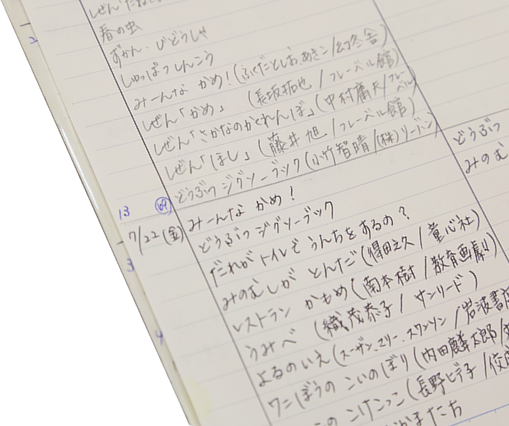 春の虫
ずかん・じどうしゃ
しゅっぱつしんこう
みーんな かめ!(ふくだとしお あきこ/幻冬舎)
ぜん「かめ」 (長坂拓也/フレーベル館)
ぜん「さかなのかくれんぼ」(中村庸夫/フレーベル
ぜん「ほし」(藤井旭/フレーベル館)
どうぶつ ジグソーブック(小竹智晴/(株)リードン)
どうぶつ
みのむ
13 69 みーんな かめ!
7/22(金) どうぶつ ジグソーブック
だれがトイレでうんちをするの?
みのむしが とんだ(得田之久/童心社)
レストラン かもめ(南本樹/教育画劇)
うみべ (織茂恭子/サンリード)
よるのいえ(スーザン・マリー・スワンソン/岩波書店
ワニぼうの こいのぼり(内田麟太郎/
こけこっこ(長野ヒデ子/佼成